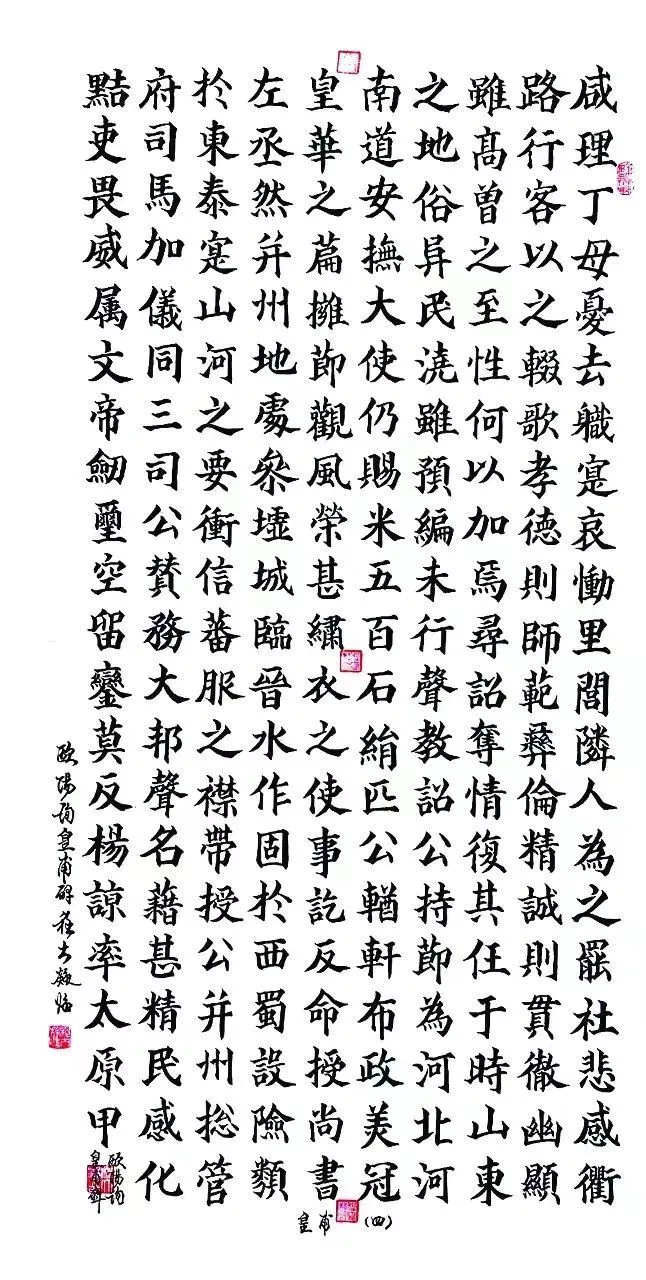 咸理丁母憂去職寔哀慟里閭隣人為之罷社悲感衢
路行客以之輟歌孝德則師範彝倫精誠則貫徹幽顯
雖高曾之至性何以加焉尋詔奪情復其任于時山東
之地俗异民澆雖預編未行聲教詔公持節為河北河
南道安撫大使仍賜米五百石絹匹公輶軒布政美冠
皇華之篇擁節觀風榮甚繡衣之使事訖反命授尚書
左丞然并州地處叅墟城臨晉水作固於西蜀設險類
於東泰寔山河之要衝信蕃服之襟帶授公并州揔管
府司馬加儀同三司公贊務大邦聲名藉甚精民感化
黠吏畏威属文帝劒璽空留鑾莫反楊諒率太原甲
欧陽詢皇甫碑
欧陽詢
皇甫碑
皇甫（四）